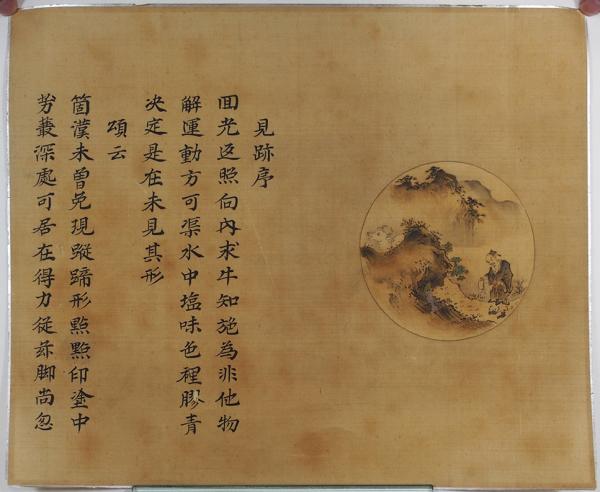 見跡序
囬光返照向内求牛知施為非他物
解運動方可渠水中塩味色裡膠青
决定是在未見其形
頌云
箇漢未曽免現蹤蹄形點點印塗中
芳叢深處可居在得力従茲脚尚忽